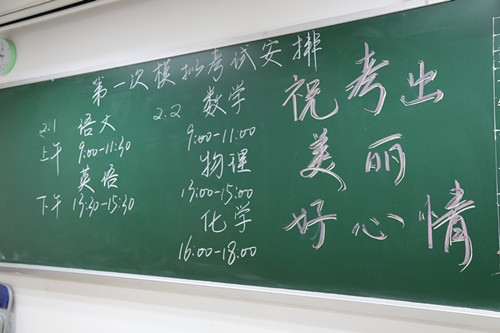 第一次模拟考试安排
2.1 语文
上午 9:00-11:30
英语
下午 13:30-15:30
2.2 数学
9:00-11:00
物理
13:00-15:00
化学
16:00-18:00
祝考出
美丽
好心情